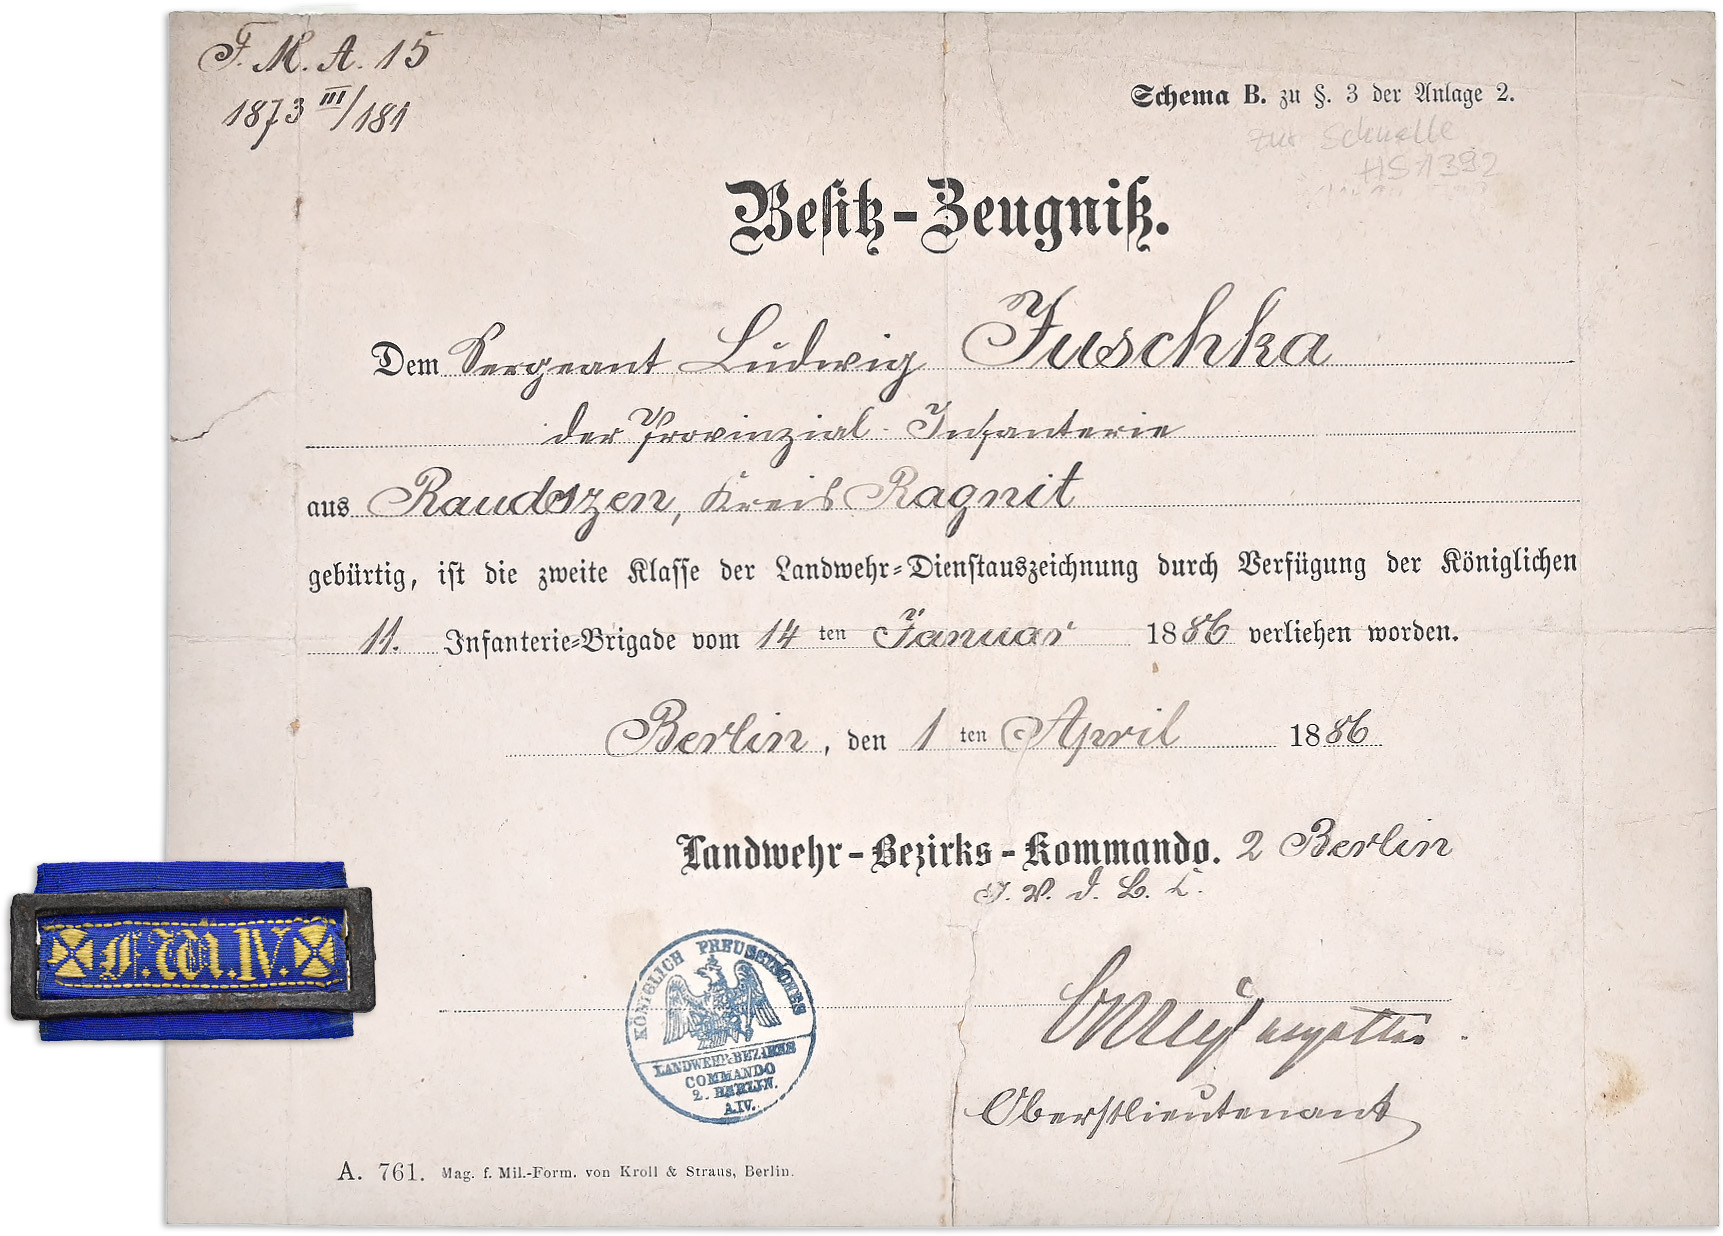 F. M. A. 15
1873 III/181
Schema B. zu §. 3 der Anlage 2.
zur Schnalle
HS1392
Besitz-Zeugniß.
Dem Sergeant Ludwig Juschka
der Provinzial-Infanterie
aus Raudszen, Kreis Ragnit
gebürtig, ist die zweite Klasse der Landwehr-Dienstauszeichnung durch Verfügung der Königlichen
11. Infanterie-Brigade vom 14 ten Januar 1886 verliehen worden.
Berlin, den 1 ten April 1886
Landwehr-Bezirks-Kommando. 2 Berlin
F.W.IV.
KÖNIGLICH PREUSSISCHES
LANDWEHR-BEZIRKS
COMMANDO
2. BERLIN.
A.IV.
Oberstlieutenant
A. 761. Mag. f. Mil.-Form. von Kroll & Straus, Berlin.